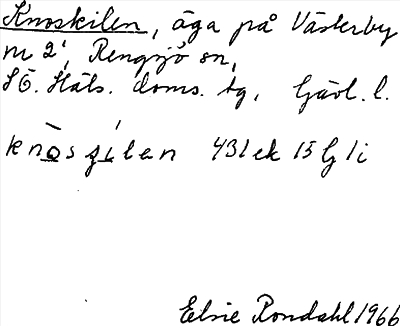 Knoskilen, äga på Västerby
nr 2, Rengsjö sn,
SÖ. Häls. doms. tg, Gävl. l.
knòsʒílen 431ek 15G1i
Elsie Rondahl 1966